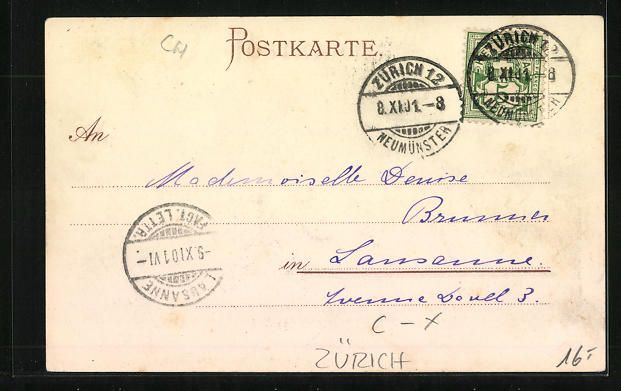 CH
POSTKARTE.
ZÜRICH 12
8.XI.01.-8
NEUMÜNSTER
ZÜRICH 12
8.XI.01.-8
NEUMÜNSTER
An
Mademoiselle Denise
Brunner
FACT. LETTR.
-9.XI01VI-
LAUSANNE
in Lausanne.
Avenue Davel 3.
C-X
ZÜRICH
16.-